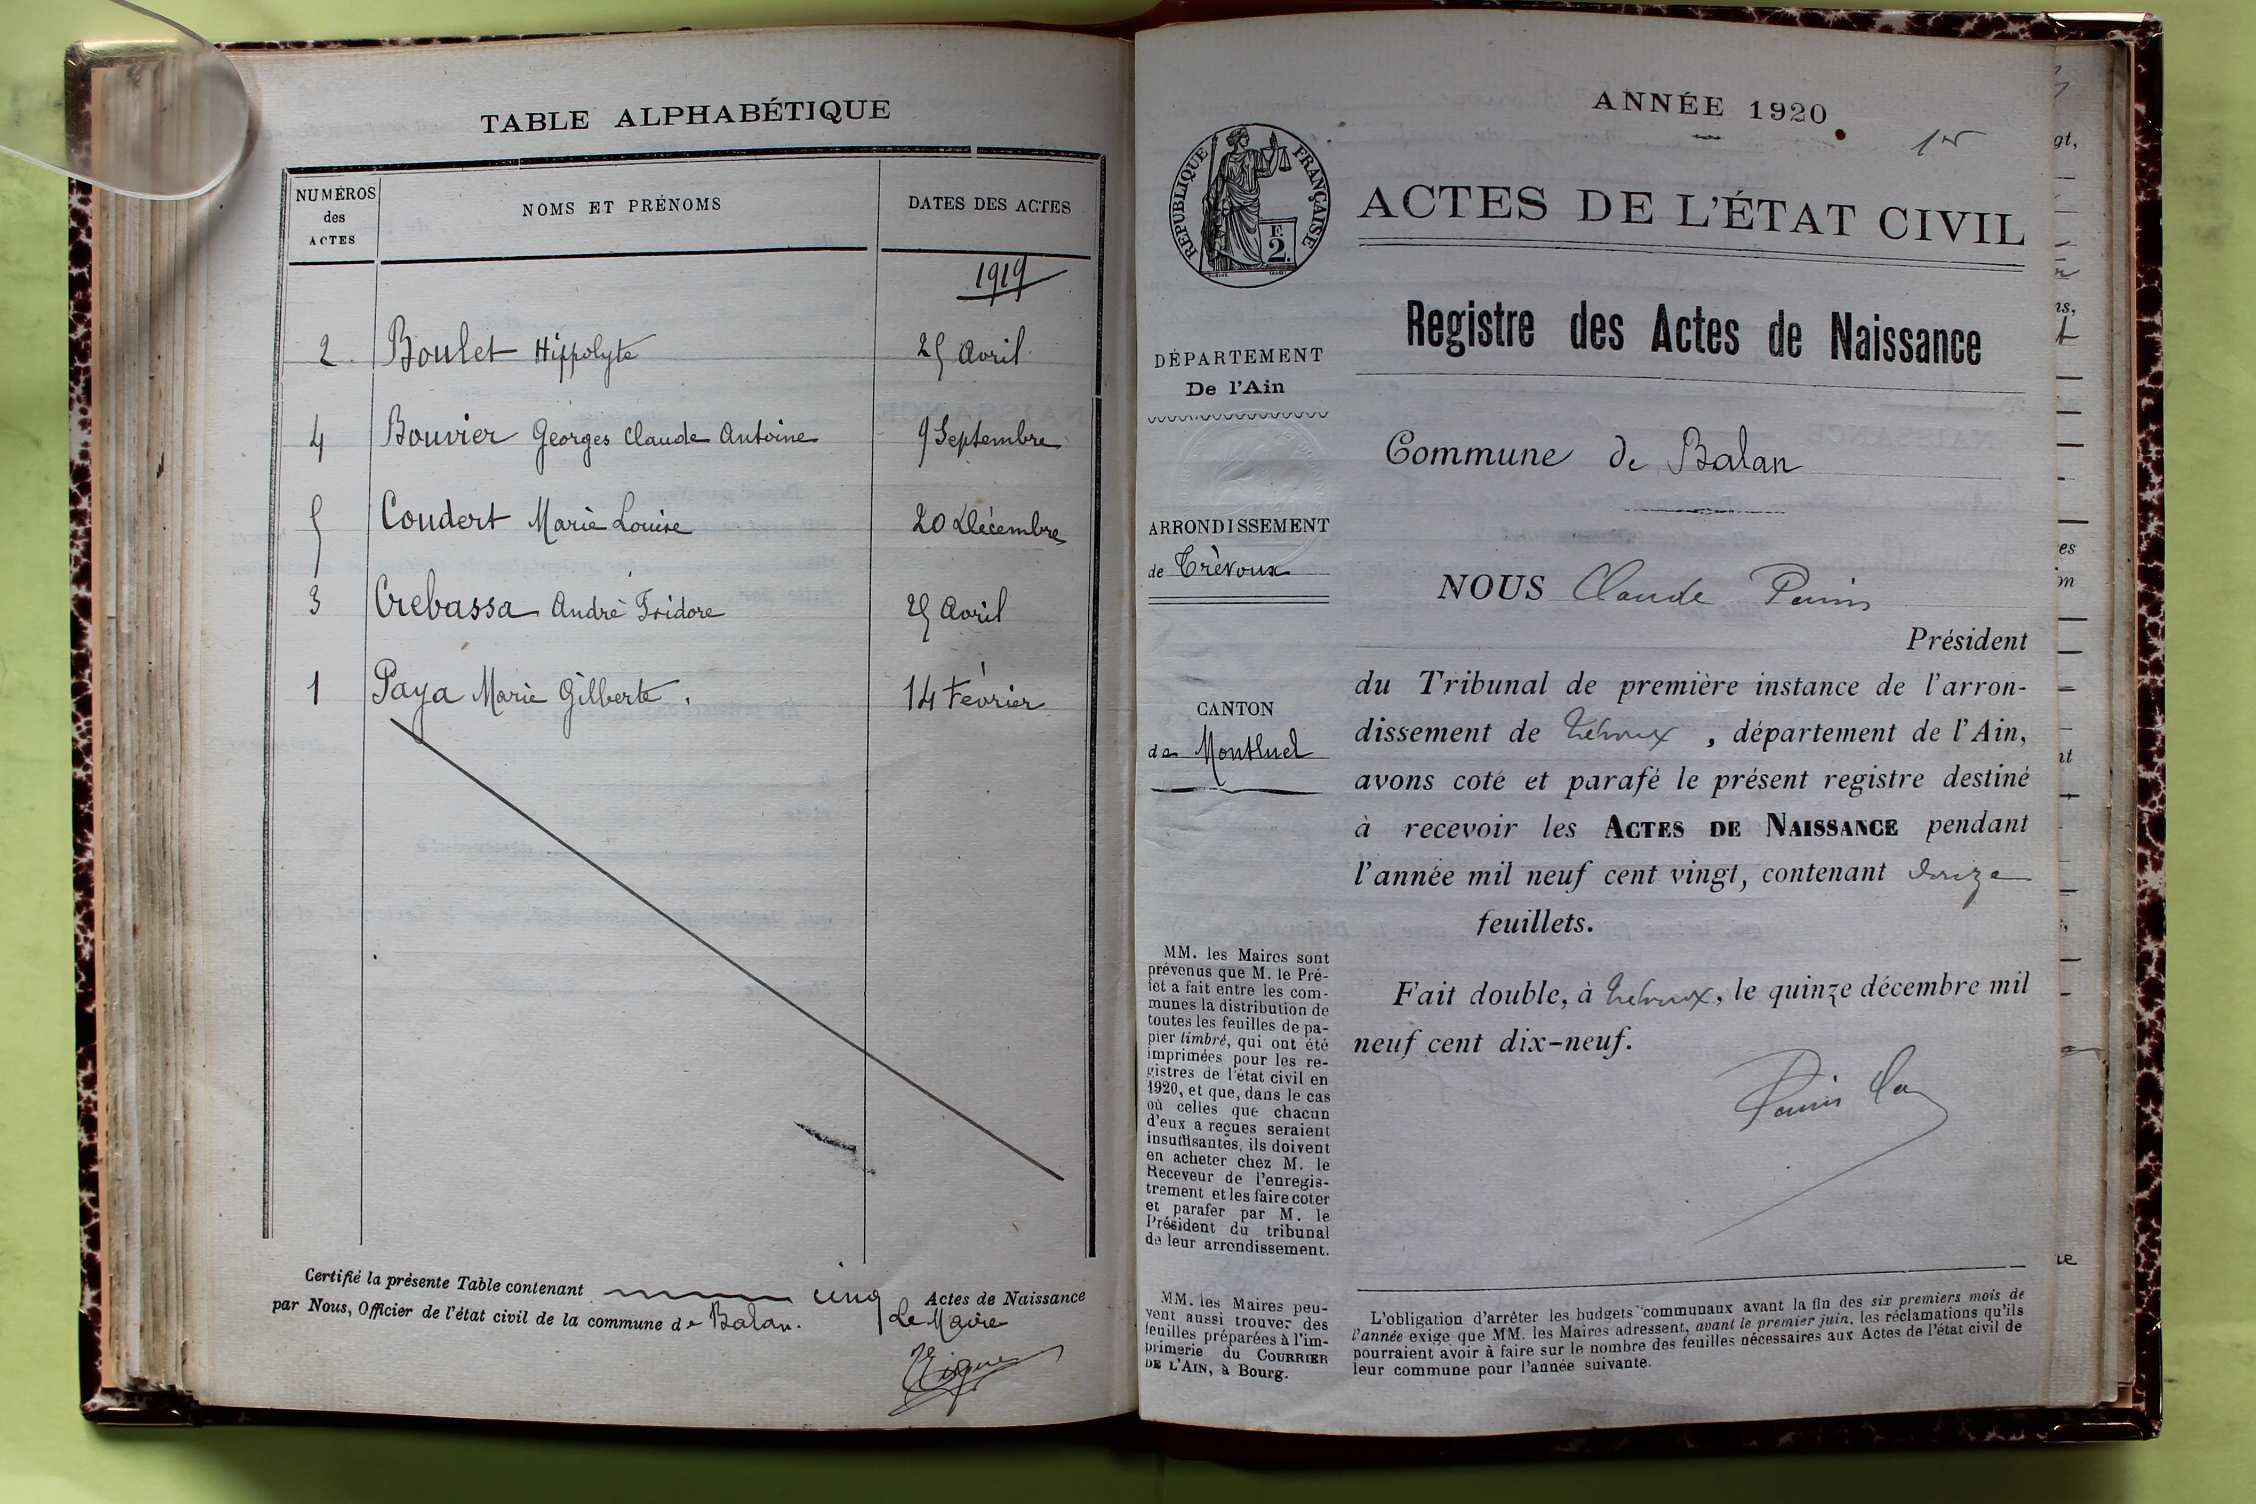 TABLE ALPHABÉTIQUE
NUMÉROS
des
ACTES
NOMS ET PRÉNOMS
DATES DES ACTES
1919
2 Boulet Hippolyte 25 Avril
4 Bouvier Georges Claude Antoine 9 Septembre
5 Coudert Marie Louise 20 Décembre
3 Crebassa André Isidore 25 Avril
1 Paya Marie Gilberte. 14 Février
Certifié la présente Table contenant cinq Actes de Naissance
par Nous, Officier de l'état civil de la commune de Balan.
Le Maire
ANNÉE 1920
1er
RÉPUBLIQUE FRANÇAISE
F.
2.
ACTES DE L'ÉTAT CIVIL
Registre des Actes de Naissance
DÉPARTEMENT
De l'Ain
Commune de Balan
ARRONDISSEMENT
de Trèvoux
CANTON
de Montluel
NOUS Claude
Président
du Tribunal de première instance de l'arron-
dissement de Trévoux, département de l'Ain,
avons coté et parafé le présent registre destiné
à recevoir les ACTES DE NAISSANCE pendant
l'année mil neuf cent vingt, contenant douze
feuillets.
Fait double, à Trévoux, le quinze décembre mil
neuf cent dix-neuf.
MM. les Maires sont
prévenus que M. le Pré-
fet a fait entre les com-
munes la distribution de
toutes les feuilles de pa-
pier timbré, qui ont été
imprimées pour les re-
gistres de l'état civil en
1920, et que, dans le cas
où celles que chacun
d'eux a reçues seraient
insuffisantes, ils doivent
en acheter chez M. le
Receveur de l'enregis-
trement et les faire coter
et parafer par M. le
Président du tribunal
de leur arrondissement.
MM. les Maires peu-
vent aussi trouver des
feuilles préparées à l'im-
primerie du COURRIER
DE L'AIN, à Bourg.
L'obligation d'arrêter les budgets communaux avant la fin des six premiers mois de
l'année exige que MM. les Maires adressent, avant le premier juin, les réclamations qu'ils
pourraient avoir à faire sur le nombre des feuilles nécessaires aux Actes de l'état civil de
leur commune pour l'année suivante.